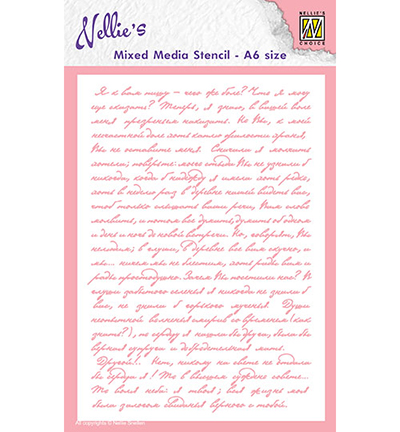 Nellie's
NELLIE'S
CHOICE
Mixed Media Stencil - A6 size
Я к вам пишу – чего же боле? Что я могу
еще сказать? Теперь, я знаю, в вашей воле
меня презреньем наказать. Но Вы, к моей
несчастной доле хоть каплю жалости храня,
Вы не оставите меня. Сначала я молчать
хотела; поверьте: моего стыда Вы не узнали б
никогда, когда б надежду я имела хоть редко,
хоть в неделю раз в деревне нашей видеть вас,
чтоб только слышать ваши речи, Вам слово
молвить, и потом все думать, думать об одном
и день и ночь до новой встречи. Но, говорят, Вы
нелюдим; в глуши, в деревне все вам скучно, а
мы... ничем мы не блестим, хоть рады вам и
рады простодушно. Зачем Вы посетили нас? В
глуши забытого селенья я никогда не знала б
вас, не знала б горького мученья. Души
неопытной волненья смирив со временем (как
знать?), по сердцу я нашла бы друга, была бы
верная супруга и добродетельная мать.
Другой!.. Нет, никому на свете не отдала
бы сердца я! То в вышнем суждено совете...
То воля неба: я твоя; вся жизнь моя
была залогом свиданья верного с тобой.
All copyrights © Nellie Snellen